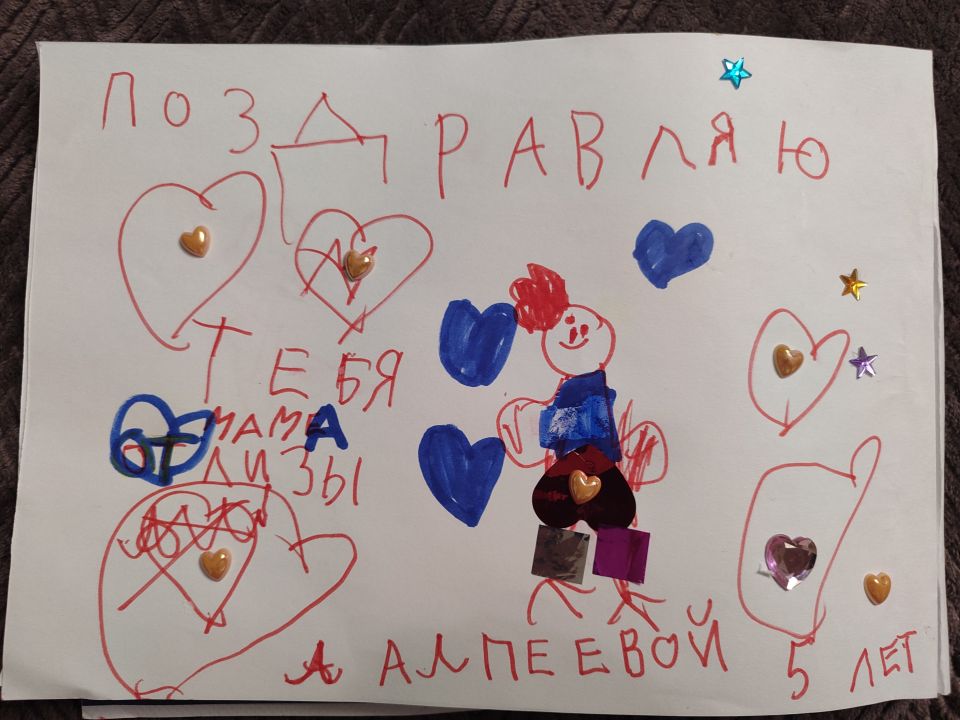 ПОЗДРАВЛЯЮ
ТЕБЯ
МАМА
ОТ ЛИЗЫ
А АЛПЕЕВОЙ 5 ЛЕТ